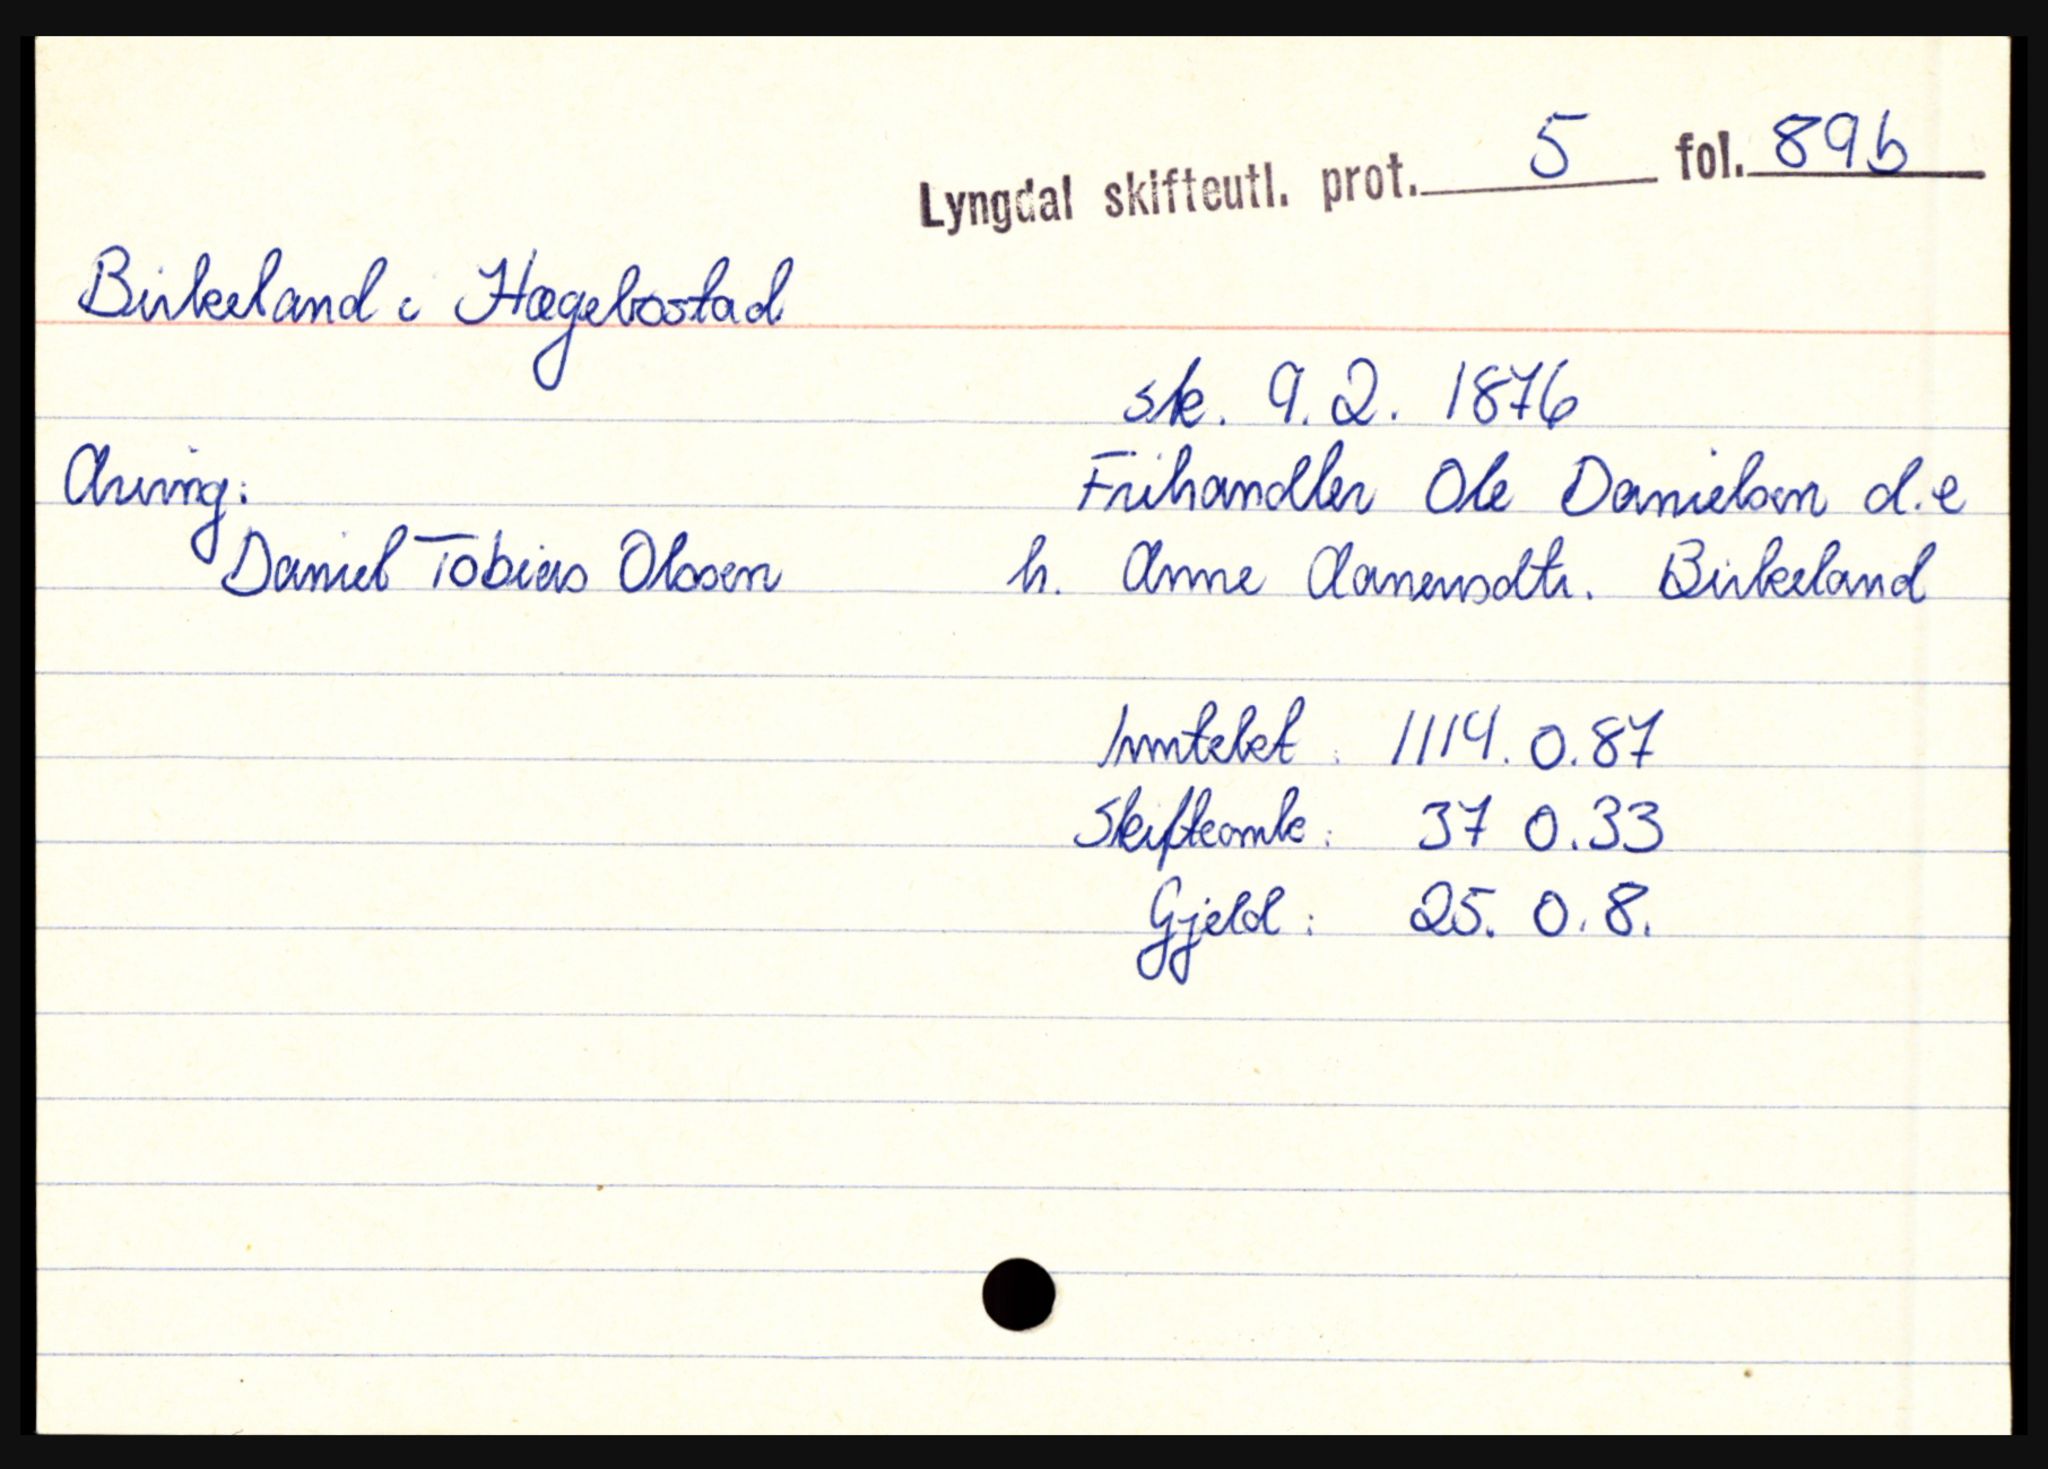 Lyngdal skifteutl. prot. 5 fol. 89b
Birkeland i Hægebostad
sk. 9.2. 1876
Arving:
Frihandler Ole Danielsen d.e
Daniel Tobias Olssen
h. Anne Aanensdtr. Birkeland
Inntekt: 1114.0.87
Skifteomk: 37 0.33
Gjeld: 25. 0.8.